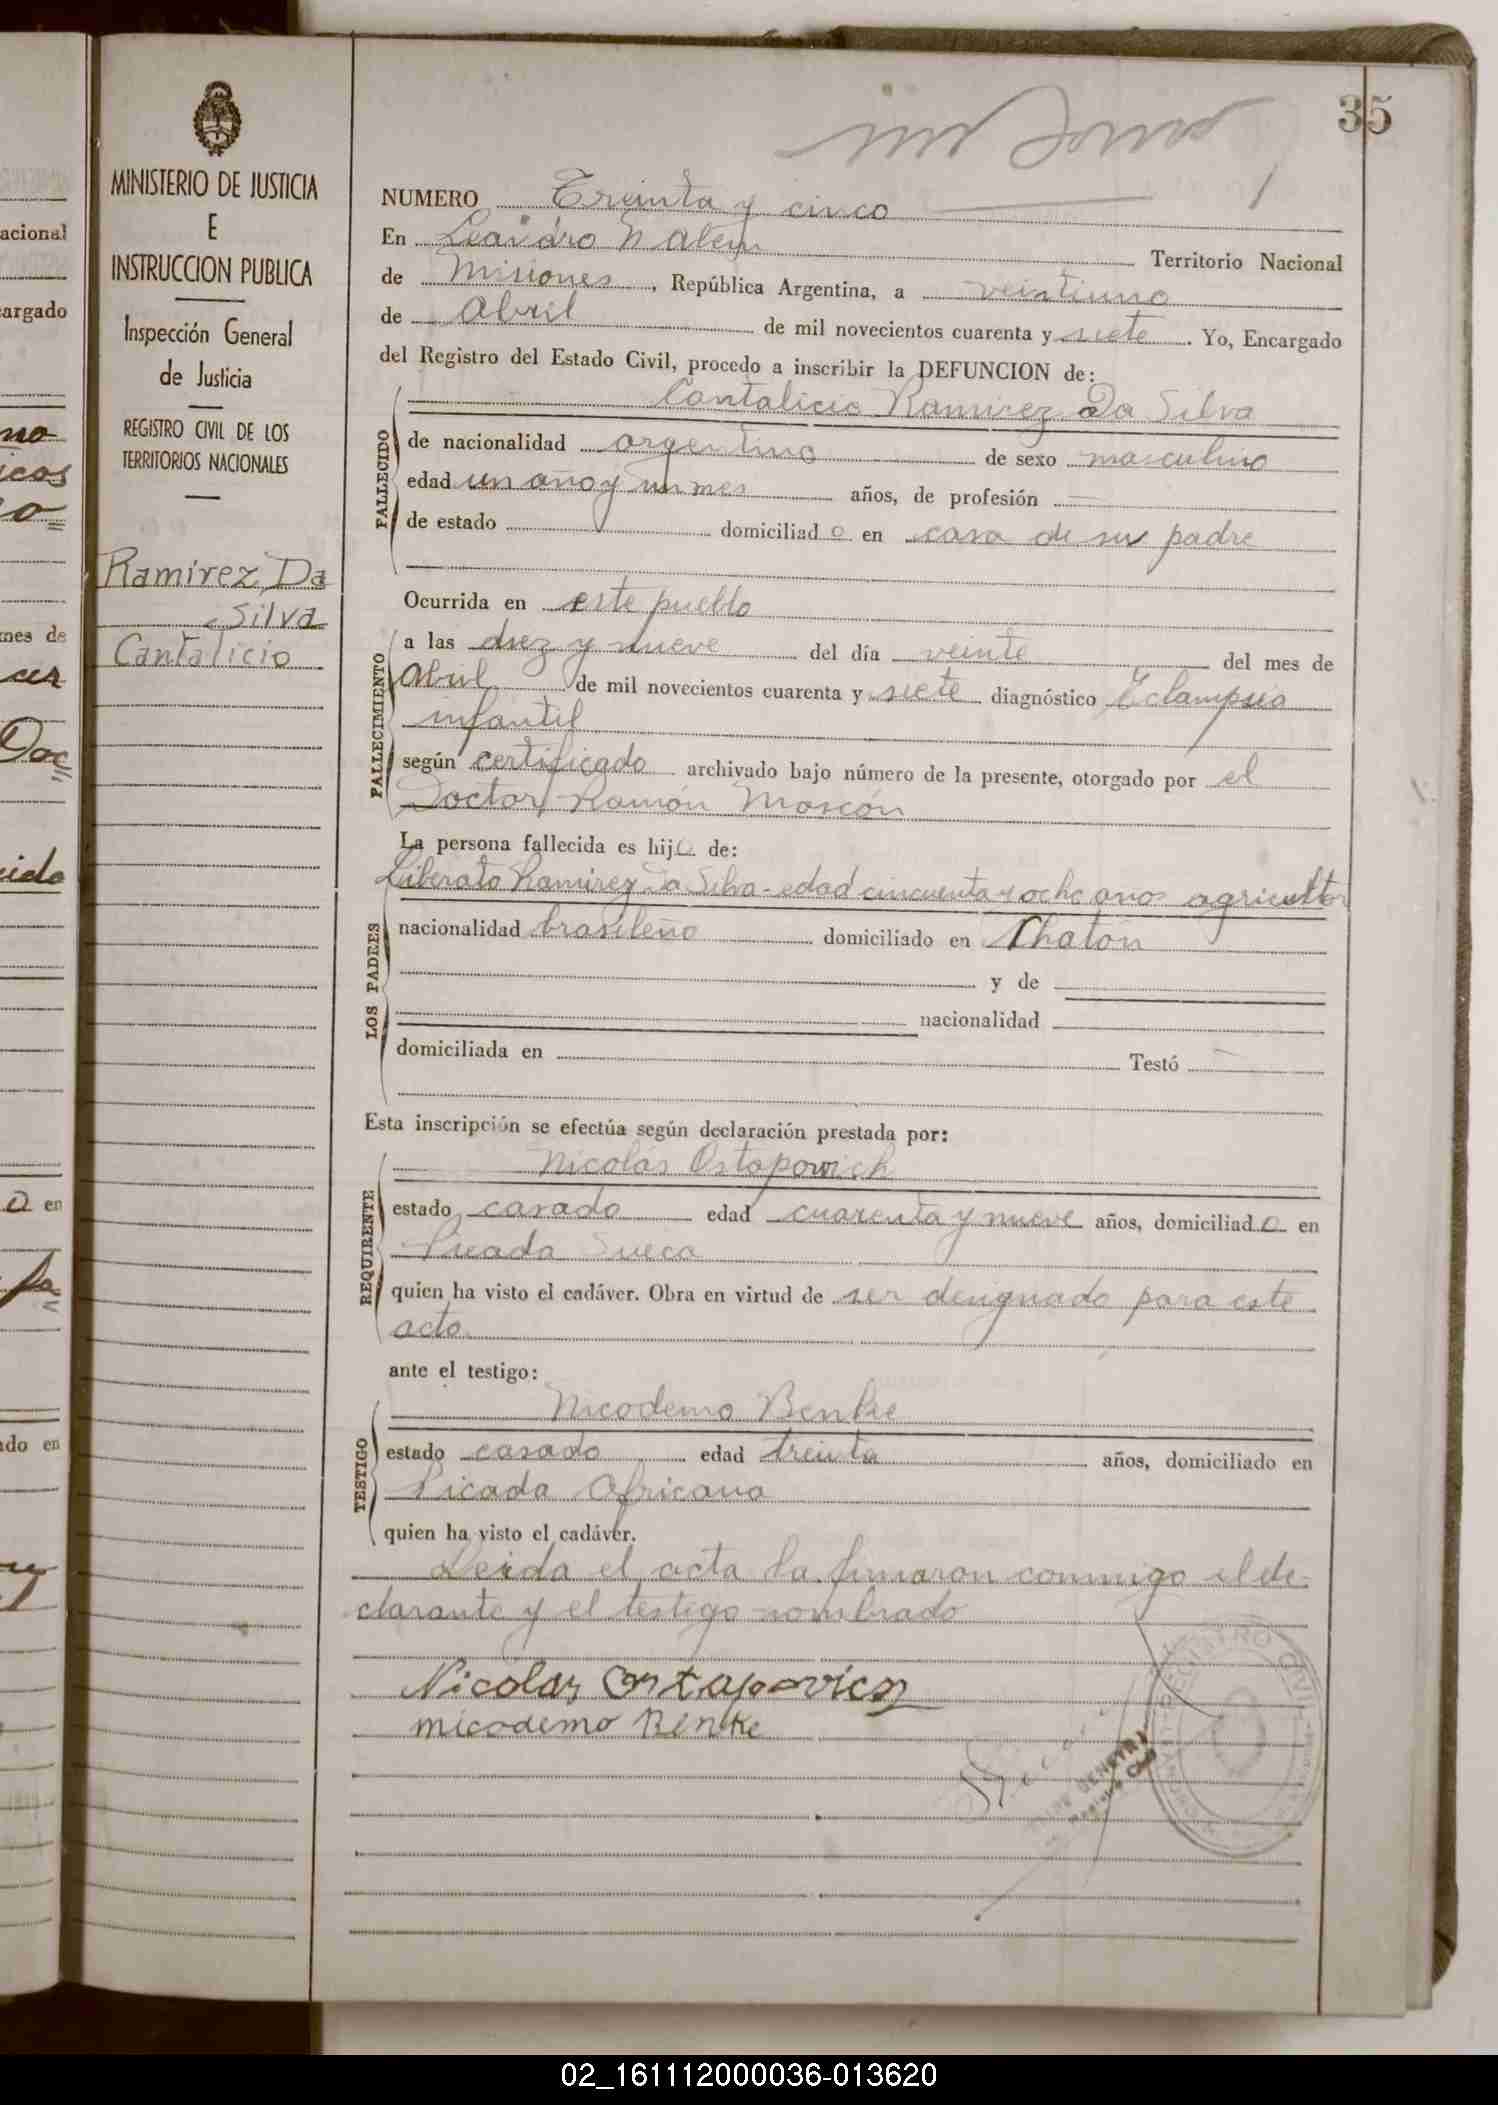 35
MINISTERIO DE JUSTICIA
E
INSTRUCCION PUBLICA
Inspección General
de Justicia
REGISTRO CIVIL DE LOS
TERRITORIOS NACIONALES
Ramirez Da
Silva
Cantalicio
NUMERO Treinta y cinco
En Leandro N Alem Territorio Nacional
de Misiones, República Argentina, a veintiuno
de Abril de mil novecientos cuarenta y siete. Yo, Encargado
del Registro del Estado Civil, procedo a inscribir la DEFUNCION de:
Cantalicio Ramirez Da Silva
FALLECIDO
de nacionalidad argentino de sexo masculino
edad un año y un mes años, de profesión
de estado domiciliado en casa de su padre
FALLECIMIENTO
Ocurrida en este pueblo
a las diez y nueve del día veinte del mes de
Abril de mil novecientos cuarenta y siete diagnóstico Eclampsia
infantil
según certificado archivado bajo número de la presente, otorgado por el
Doctor Ramón Moscón
La persona fallecida es hijo de:
LOS PADRES
Liberato Ramirez Da Silva - edad cincuenta y ocho años agricultor
nacionalidad brasileño domiciliado en Chaton
y de
nacionalidad
domiciliada en Testó
Esta inscripción se efectúa según declaración prestada por:
REQUIRENTE
Nicolás Ostapowich
estado casado edad cuarenta y nueve años, domiciliado en
Picada Sueca
quien ha visto el cadáver. Obra en virtud de ser designado para este
acto
ante el testigo:
TESTIGO
Nicodemo Benke
estado casado edad treinta años, domiciliado en
Picada Africana
quien ha visto el cadáver.
Leida el acta la firmaron conmigo el de-
clarante y el testigo nombrado
Nicolas Ostapovicz
nicodemo Benke
REGISTRO CIVIL
acional
cargado
no
icos
mes de
cer
Doc
en
ado en
02_161112000036-013620